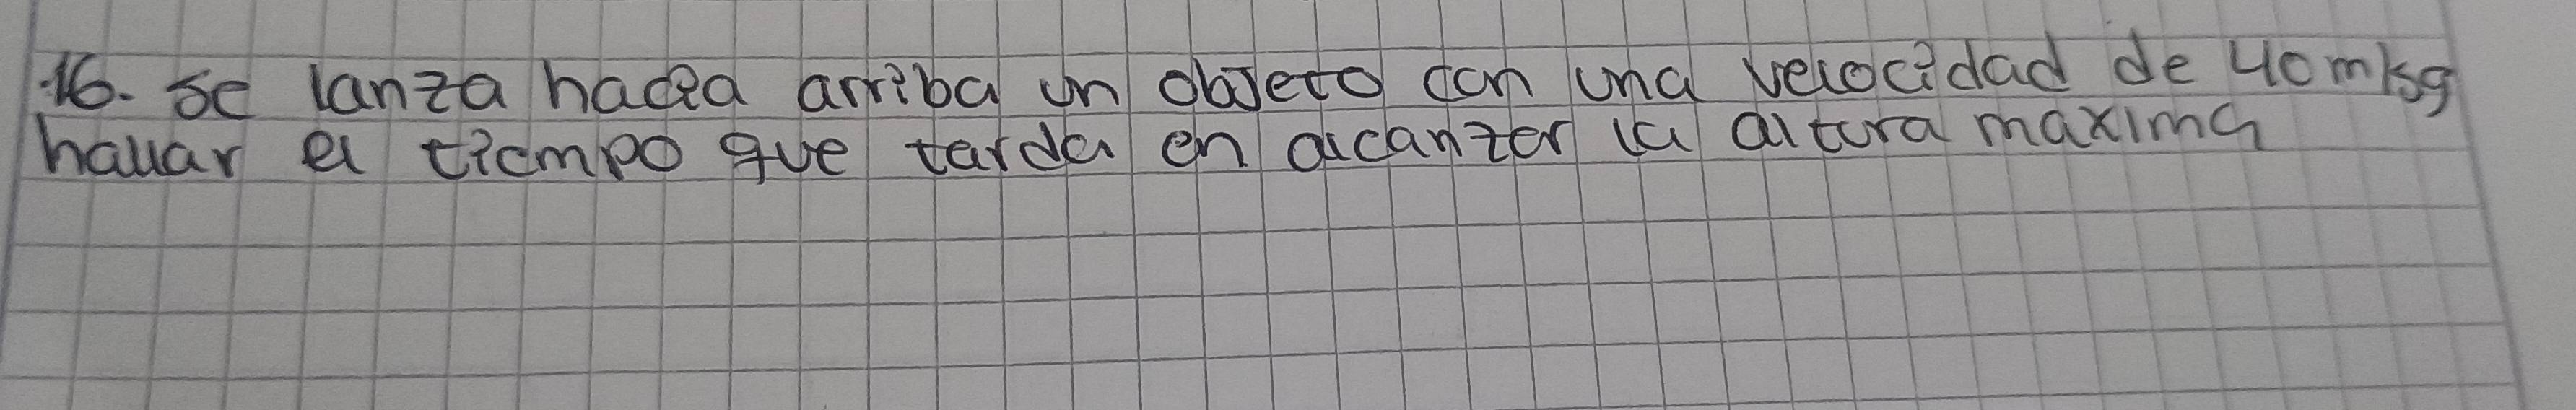 16. se lanza hacia arriba un objeto con una velocidad de 40 m/sg
hallar el tiempo que tarda en alcanzar la altura maxima